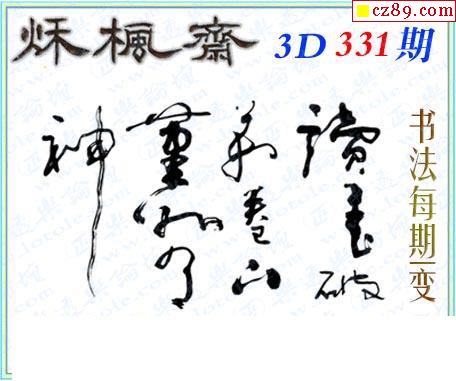 cz89.com
秋楓齋 3D 331期
讀書破
万卷
如有
神
书法每期一变